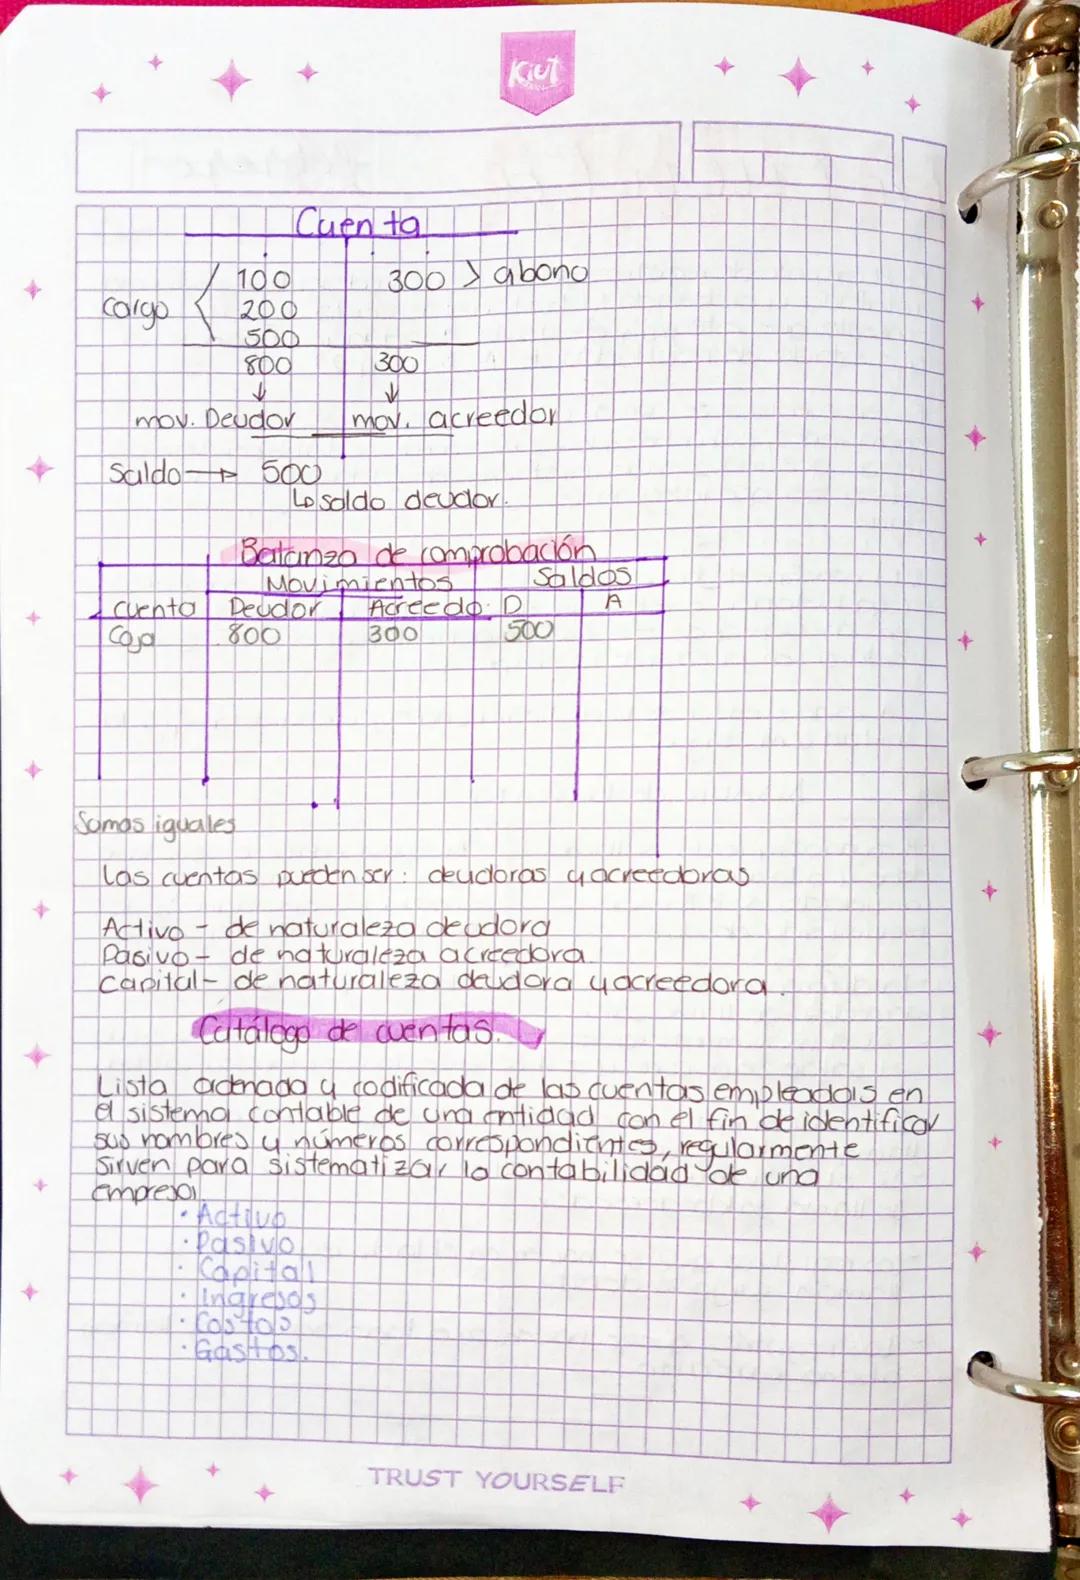 Kiut
Cuenta
cargo
100 300 > abono
200
500
800 300
mov. Deudor mov. acreedor
Saldo → 500
↳ saldo deudor.
Balanza de comprobación
Movimientos Saldos
cuenta Deudor Acreedo D A
Caja 800 300 500
Somas iguales
Las cuentas pueden ser: deudoras y acreedoras
Activo - de naturaleza deudora
Pasivo - de naturaleza acreedora.
Capital - de naturaleza deudora y acreedora.
Catálogo de cuentas.
Lista ordenada y codificada de las cuentas empleadas en
el sistema contable de una entidad con el fin de identificar
sus nombres y números correspondientes, regularmente
sirven para sistematizar la contabilidad de una
empresa.
• Activo
• Pasivo
• Capital
• Ingresos
• Costos
• Gastos.
TRUST YOURSELF